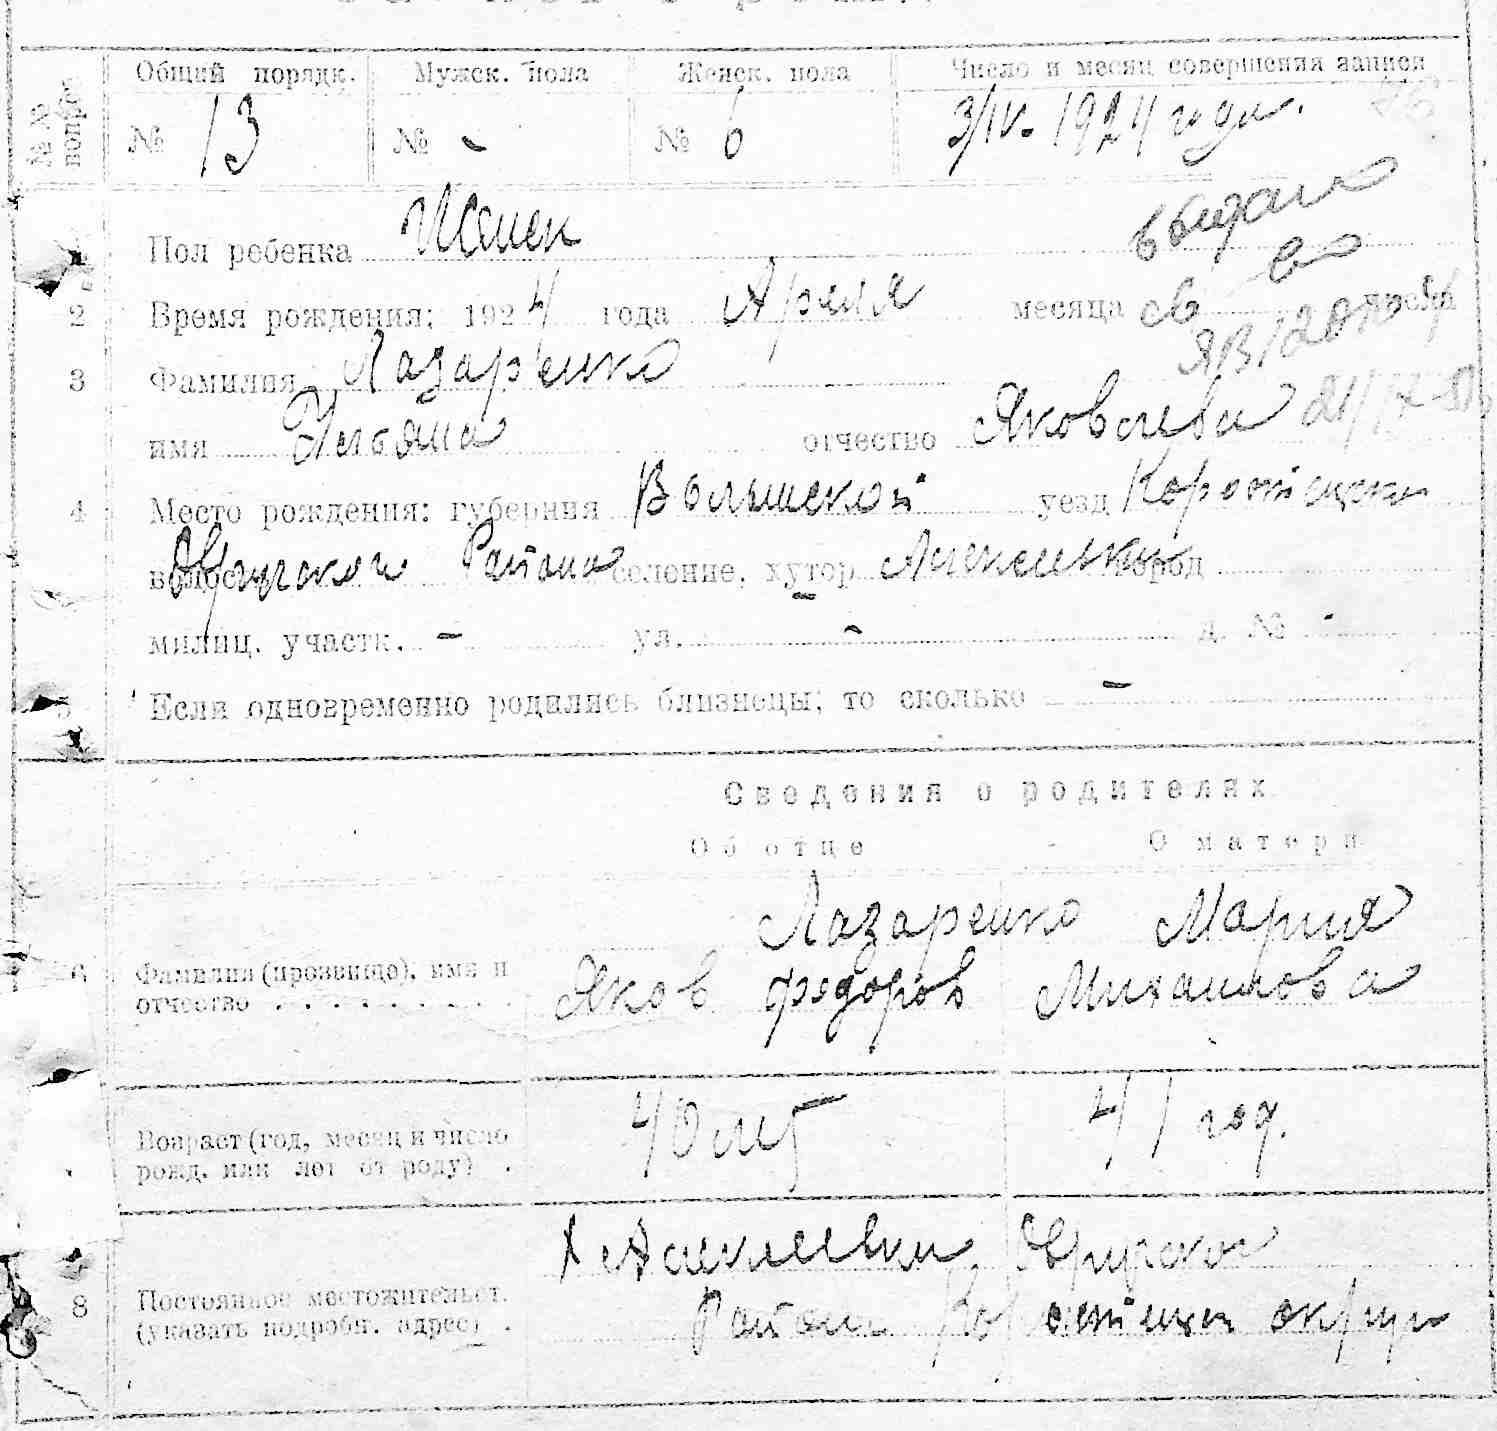 Общий порядк. Мужск. пола Женск. пола Число и месяц совершения записи
№№ вопрос.
№ 13 № - № 6 3/IV. 1924 года.
Пол ребенка Женск
выдано
2 Время рождения: 1924 года Апреля месяца
св
3 Фамилия Лазаренко
имя Ульяна отчество Яковлева
4 Место рождения: губерния Волынской уезд Коростенско
Овручского Района селение, хутор Алексеевка город
милиц. участк. - ул. - д. № -
5 Если одновременно родились близнецы; то сколько -
Сведения о родителях
Об отце О матери
Лазаренко Мария
6 Фамилия (прозвище), имя и
отчество . . . . . . . . Яков Федоров Михаилова
Возраст (год, месяц и число 40 лет 41 год.
рожд. или лет от роду) .
Х Алексеевки Овручског
8 Постоянное местожительст.
(указать подробн. адрес) . Район Коростенск округи